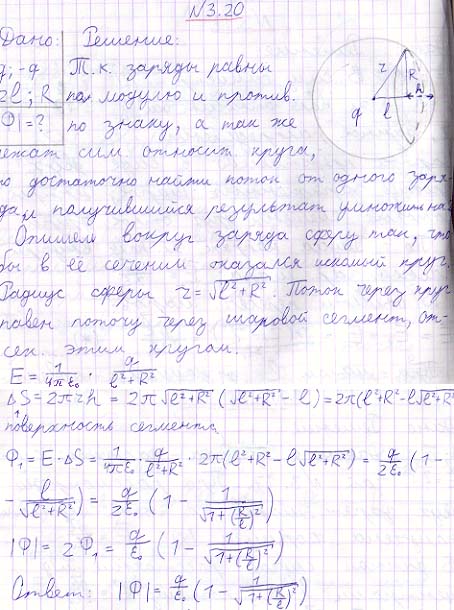 N3.20
Дано: Решение:
q; -q Т.к. заряды равны
2l; R по модулю и против.
|Ф|=? по знаку, а так же
лежат сим. относит. круга,
то достаточно найти поток от одного заря-
да, и получившийся результат умножить на
Опишем вокруг заряда сферу так, что
бы в её сечении оказался искомый круг.
Радиус сферы r = √(l²+R²). Поток через круг
равен потоку через шаровой сегмент, от-
сек. этим кругом.
E = 1/(4πε₀) · q/(l²+R²)
ΔS = 2πrh = 2π√(l²+R²) (√(l²+R²) - l) = 2π(l²+R² - l√(l²+R²))
поверхность сегмента
Ф₁ = E·ΔS = 1/(4πε₀) · q/(l²+R²) · 2π(l²+R² - l√(l²+R²)) = q/(2ε₀) (1 -
- l/√(l²+R²)) = q/(2ε₀) (1 - 1/√(1+(R/l)²))
|Ф| = 2Ф₁ = q/ε₀ (1 - 1/√(1+(R/l)²))
Ответ: |Ф| = q/ε₀ (1 - 1/√(1+(R/l)²))
r
R
h
q
l